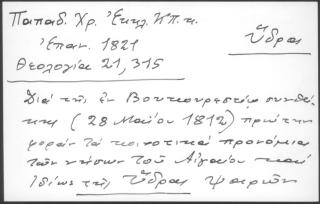 Παπαδ. Χρ. Ἐκκλ. Κπ.
Ὕδρα
Ἐπαν. 1821
Θεολογία 21, 315
Διά τῆς ἐν Βουκουρεστίῳ συνθή
κης (28 Μαΐου 1812) πρώτην
φοράν τά κοινοτικά προνόμια
τῶν νήσων τοῦ Αἰγαίου καί
ἰδίως τῆς Ὕδρας Ψαρῶν